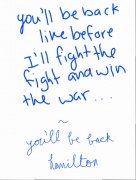 you'll be back
like before
I'll fight the
fight and win
the war...
~
you'll be back
hamilton